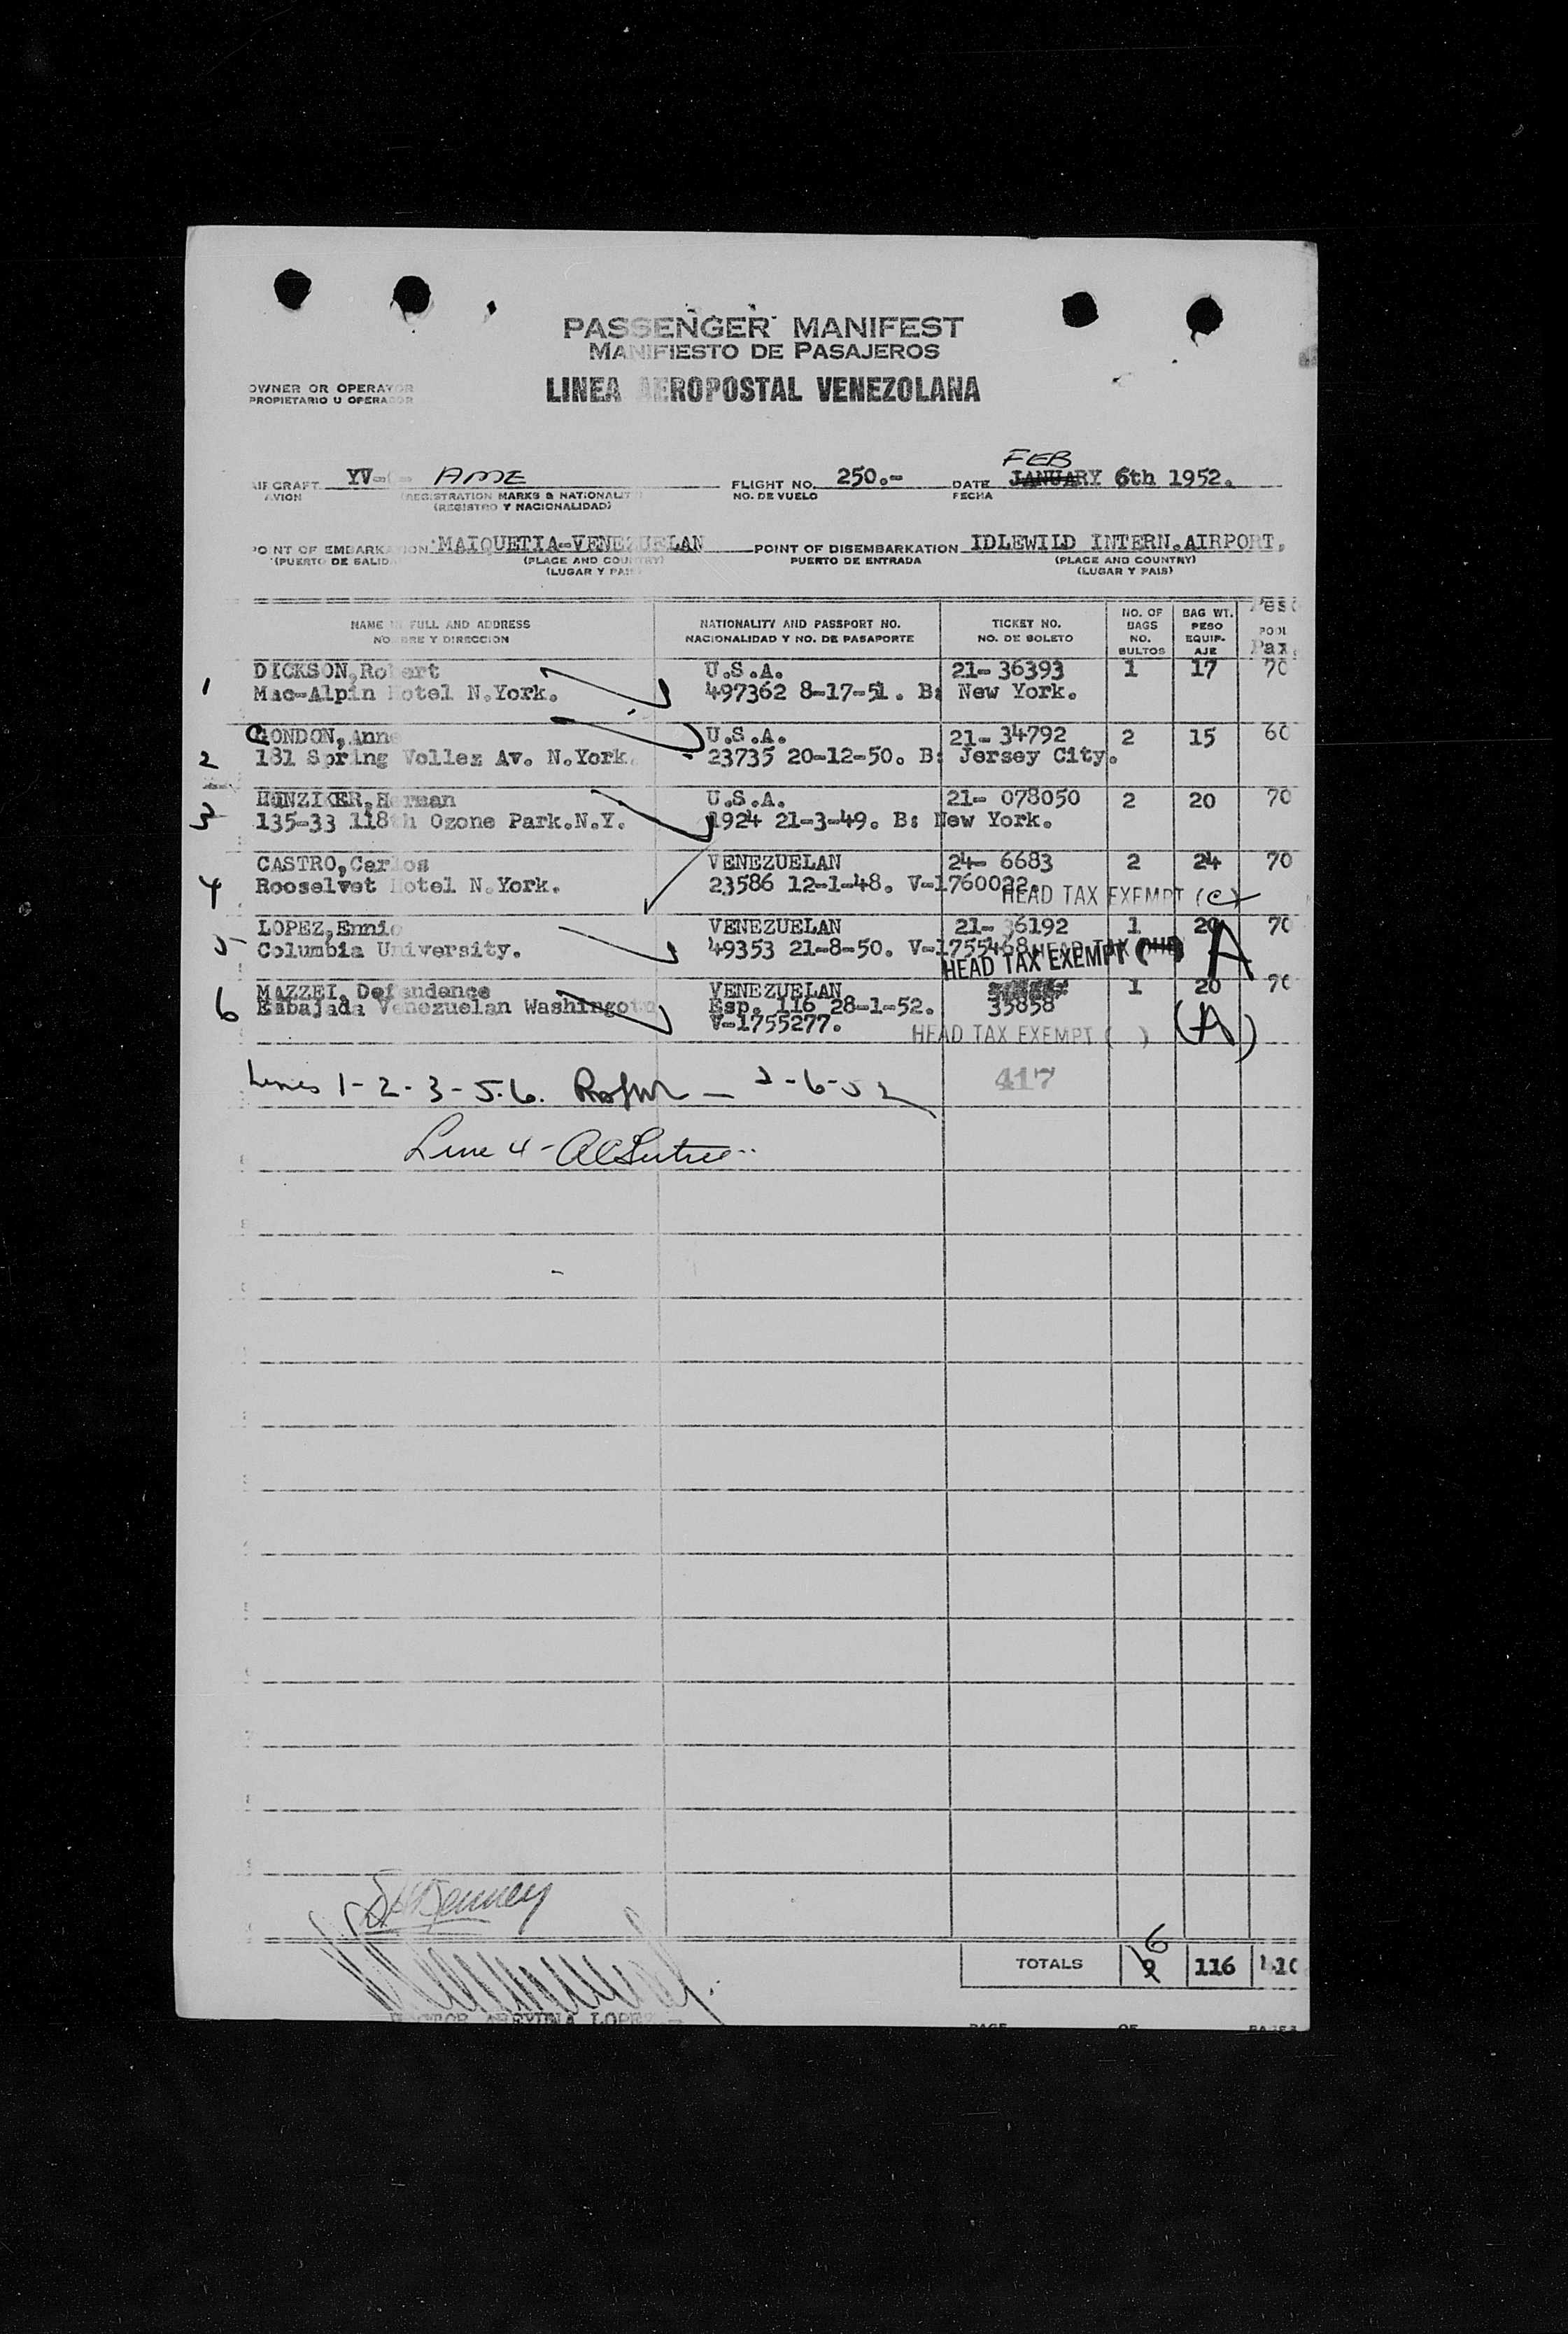 PASSENGER MANIFEST
MANIFIESTO DE PASAJEROS
OWNER OR OPERATOR
PROPIETARIO U OPERADOR
LINEA AEROPOSTAL VENEZOLANA
FEB
AIRCRAFT YV- AME FLIGHT NO. 250.- DATE JANUARY 6th 1952.
AVION (REGISTRATION MARKS & NATIONALITY) NO. DE VUELO FECHA
(REGISTRO Y NACIONALIDAD)
POINT OF EMBARKATION MAIQUETIA-VENEZUELAN POINT OF DISEMBARKATION IDLEWILD INTERN.AIRPORT.
(PUERTO DE SALIDA (PLACE AND COUNTRY) PUERTO DE ENTRADA (PLACE AND COUNTRY)
(LUGAR Y PAIS) (LUGAR Y PAIS)
NAME IN FULL AND ADDRESS NATIONALITY AND PASSPORT NO. TICKET NO. NO. OF BAGS BAG WT. Peso
NOMBRE Y DIRECCION NACIONALIDAD Y NO. DE PASAPORTE NO. DE BOLETO NO. BULTOS PESO EQUIP-AJE Pax.
DICKSON,Robert U.S.A. 21-36393 1 17 70
1 Mac-Alpin Hotel N.York. 497362 8-17-51. B: New York.
GONDON,Anne U.S.A. 21-34792 2 15 60
2 181 Spring Vollez Av. N.York. 23735 20-12-50. B: Jersey City.
HUNZIKER,Herman U.S.A. 21- 078050 2 20 70
3 135-33 118th Ozone Park.N.Y. 1924 21-3-49. B: New York.
CASTRO,Carlos VENEZUELAN 24- 6683 2 24 70
4 Rooselvet Hotel N.York. 23586 12-1-48. V-1760022.
HEAD TAX EXEMPT (C)
LOPEZ,Ennio VENEZUELAN 21-36192 1 20 70
5 Columbia University. 49353 21-8-50. V-1755468
HEAD TAX EXEMPT A
MAZZEI, Defendence VENEZUELAN 1 20 70
6 Embajada Venezuelan Washingoton Esp. 116 28-1-52. 35858
V-1755277. HEAD TAX EXEMPT ( ) (A)
Lines 1-2-3-5-6. 2-6-52 417
Line 4 -
6
TOTALS 9 116
LOPEZ
PAGE OF PAGES